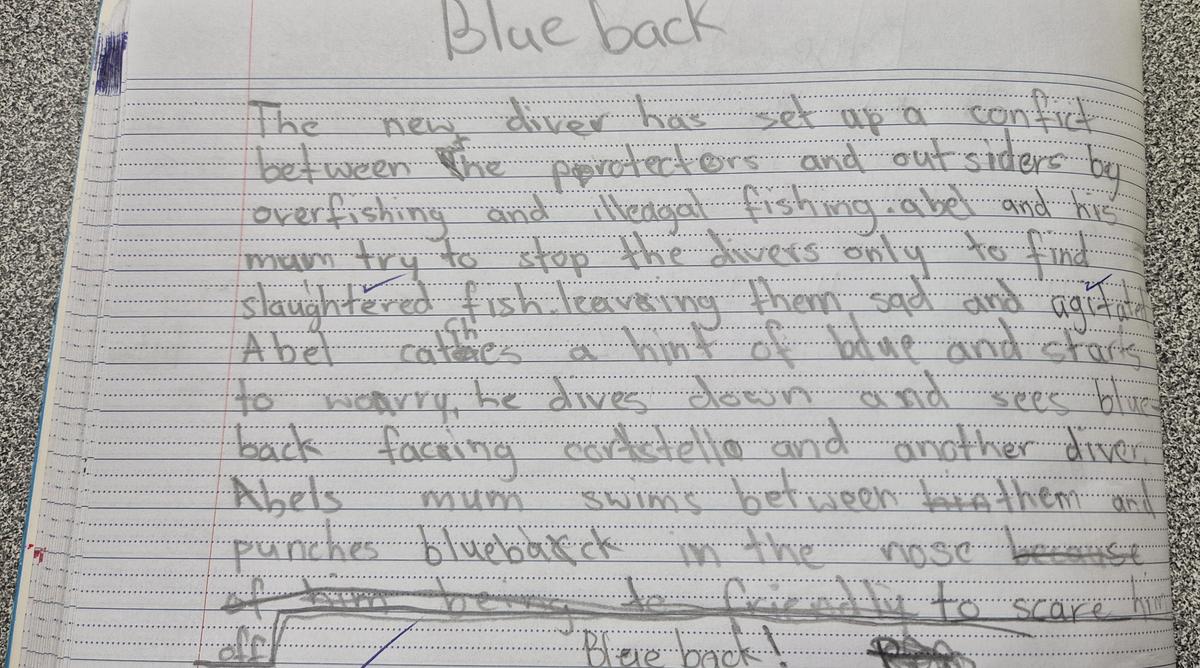 Blue back
The new diver has set up a confict
between the protectors and outsiders by
overfishing and illeagal fishing.abel and his
mum try to stop the divers only to find
slaughtered fish.leaving them sad and agitated
Abel catches a hint of blue and starts
to worry, he dives down and sees blue
back facing cortstello and another diver.
Abels mum swims between them and
punches blueback in the nose because
of him being to friendly to scare him
off Blue back!